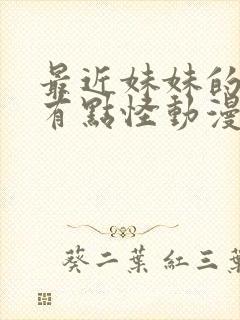 最近妹妹的
有點怪動漫
葵二葉 紅三葉